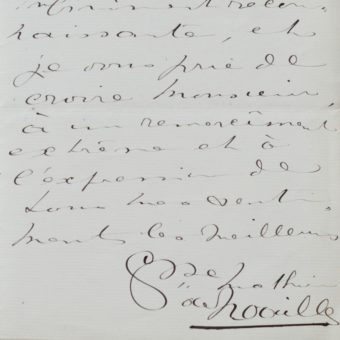 infiniment recon-
naissante, et
je vous prie de
croire Monsieur,
à un remerciement
extrême et à
l'expression de
tous mes senti-
ments les meilleurs
Csse Mathieu
de Noailles